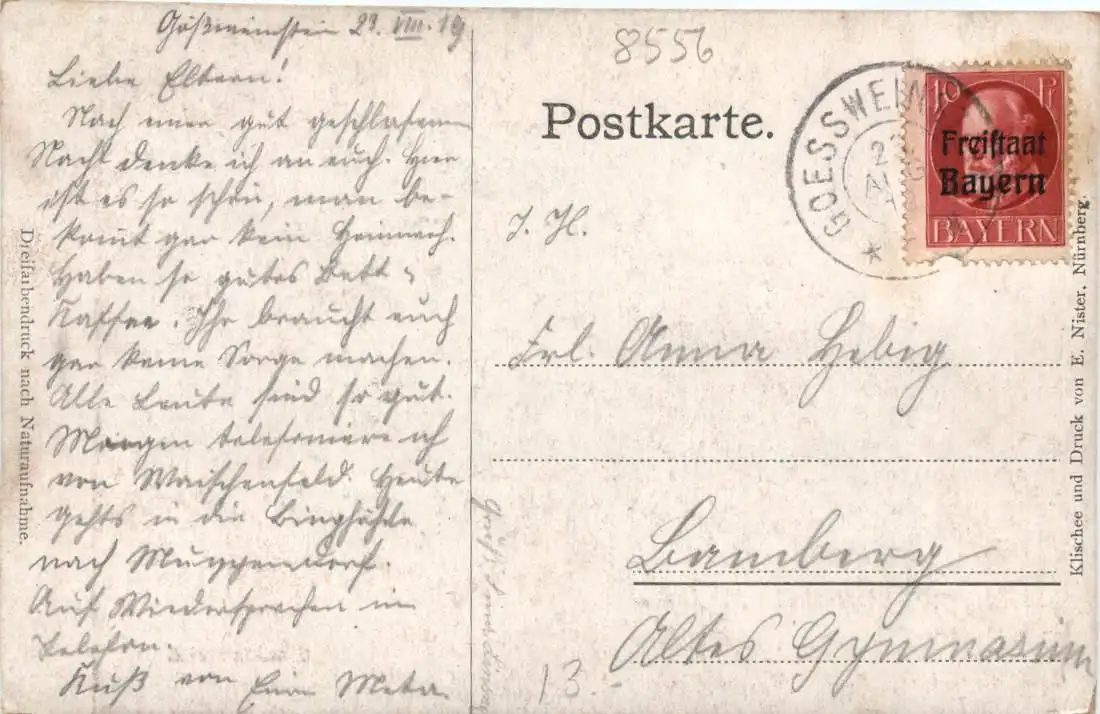 Gößweinstein 23. VIII. 19
Liebe Eltern!
Nach einer gut geschlafenen
Nacht denke ich an euch. Hier
ist es so schön, man be-
komt gar kein Heimweh.
Haben so gutes Bett &
Kaffee. Ihr braucht euch
gar keine Sorge machen.
Alle Leute sind so gut.
Morgen telefoniere ich
von Waischenfeld. Heute
gehts in die Binghöhle
nach Muggendorf.
Auf Wiedersprechen im
Telefon.
Kuß von Eurer Meta.
Dreifarbendruck nach Naturaufnahme.
8556
Postkarte.
GOESSWEIN
23
AUG
10 Pf
Freistaat
Bayern
BAYERN
J. H.
Frl. Anna Hebig
Bamberg
Altes Gymnasium
13.
Klischee und Druck von E. Nister, Nürnberg.